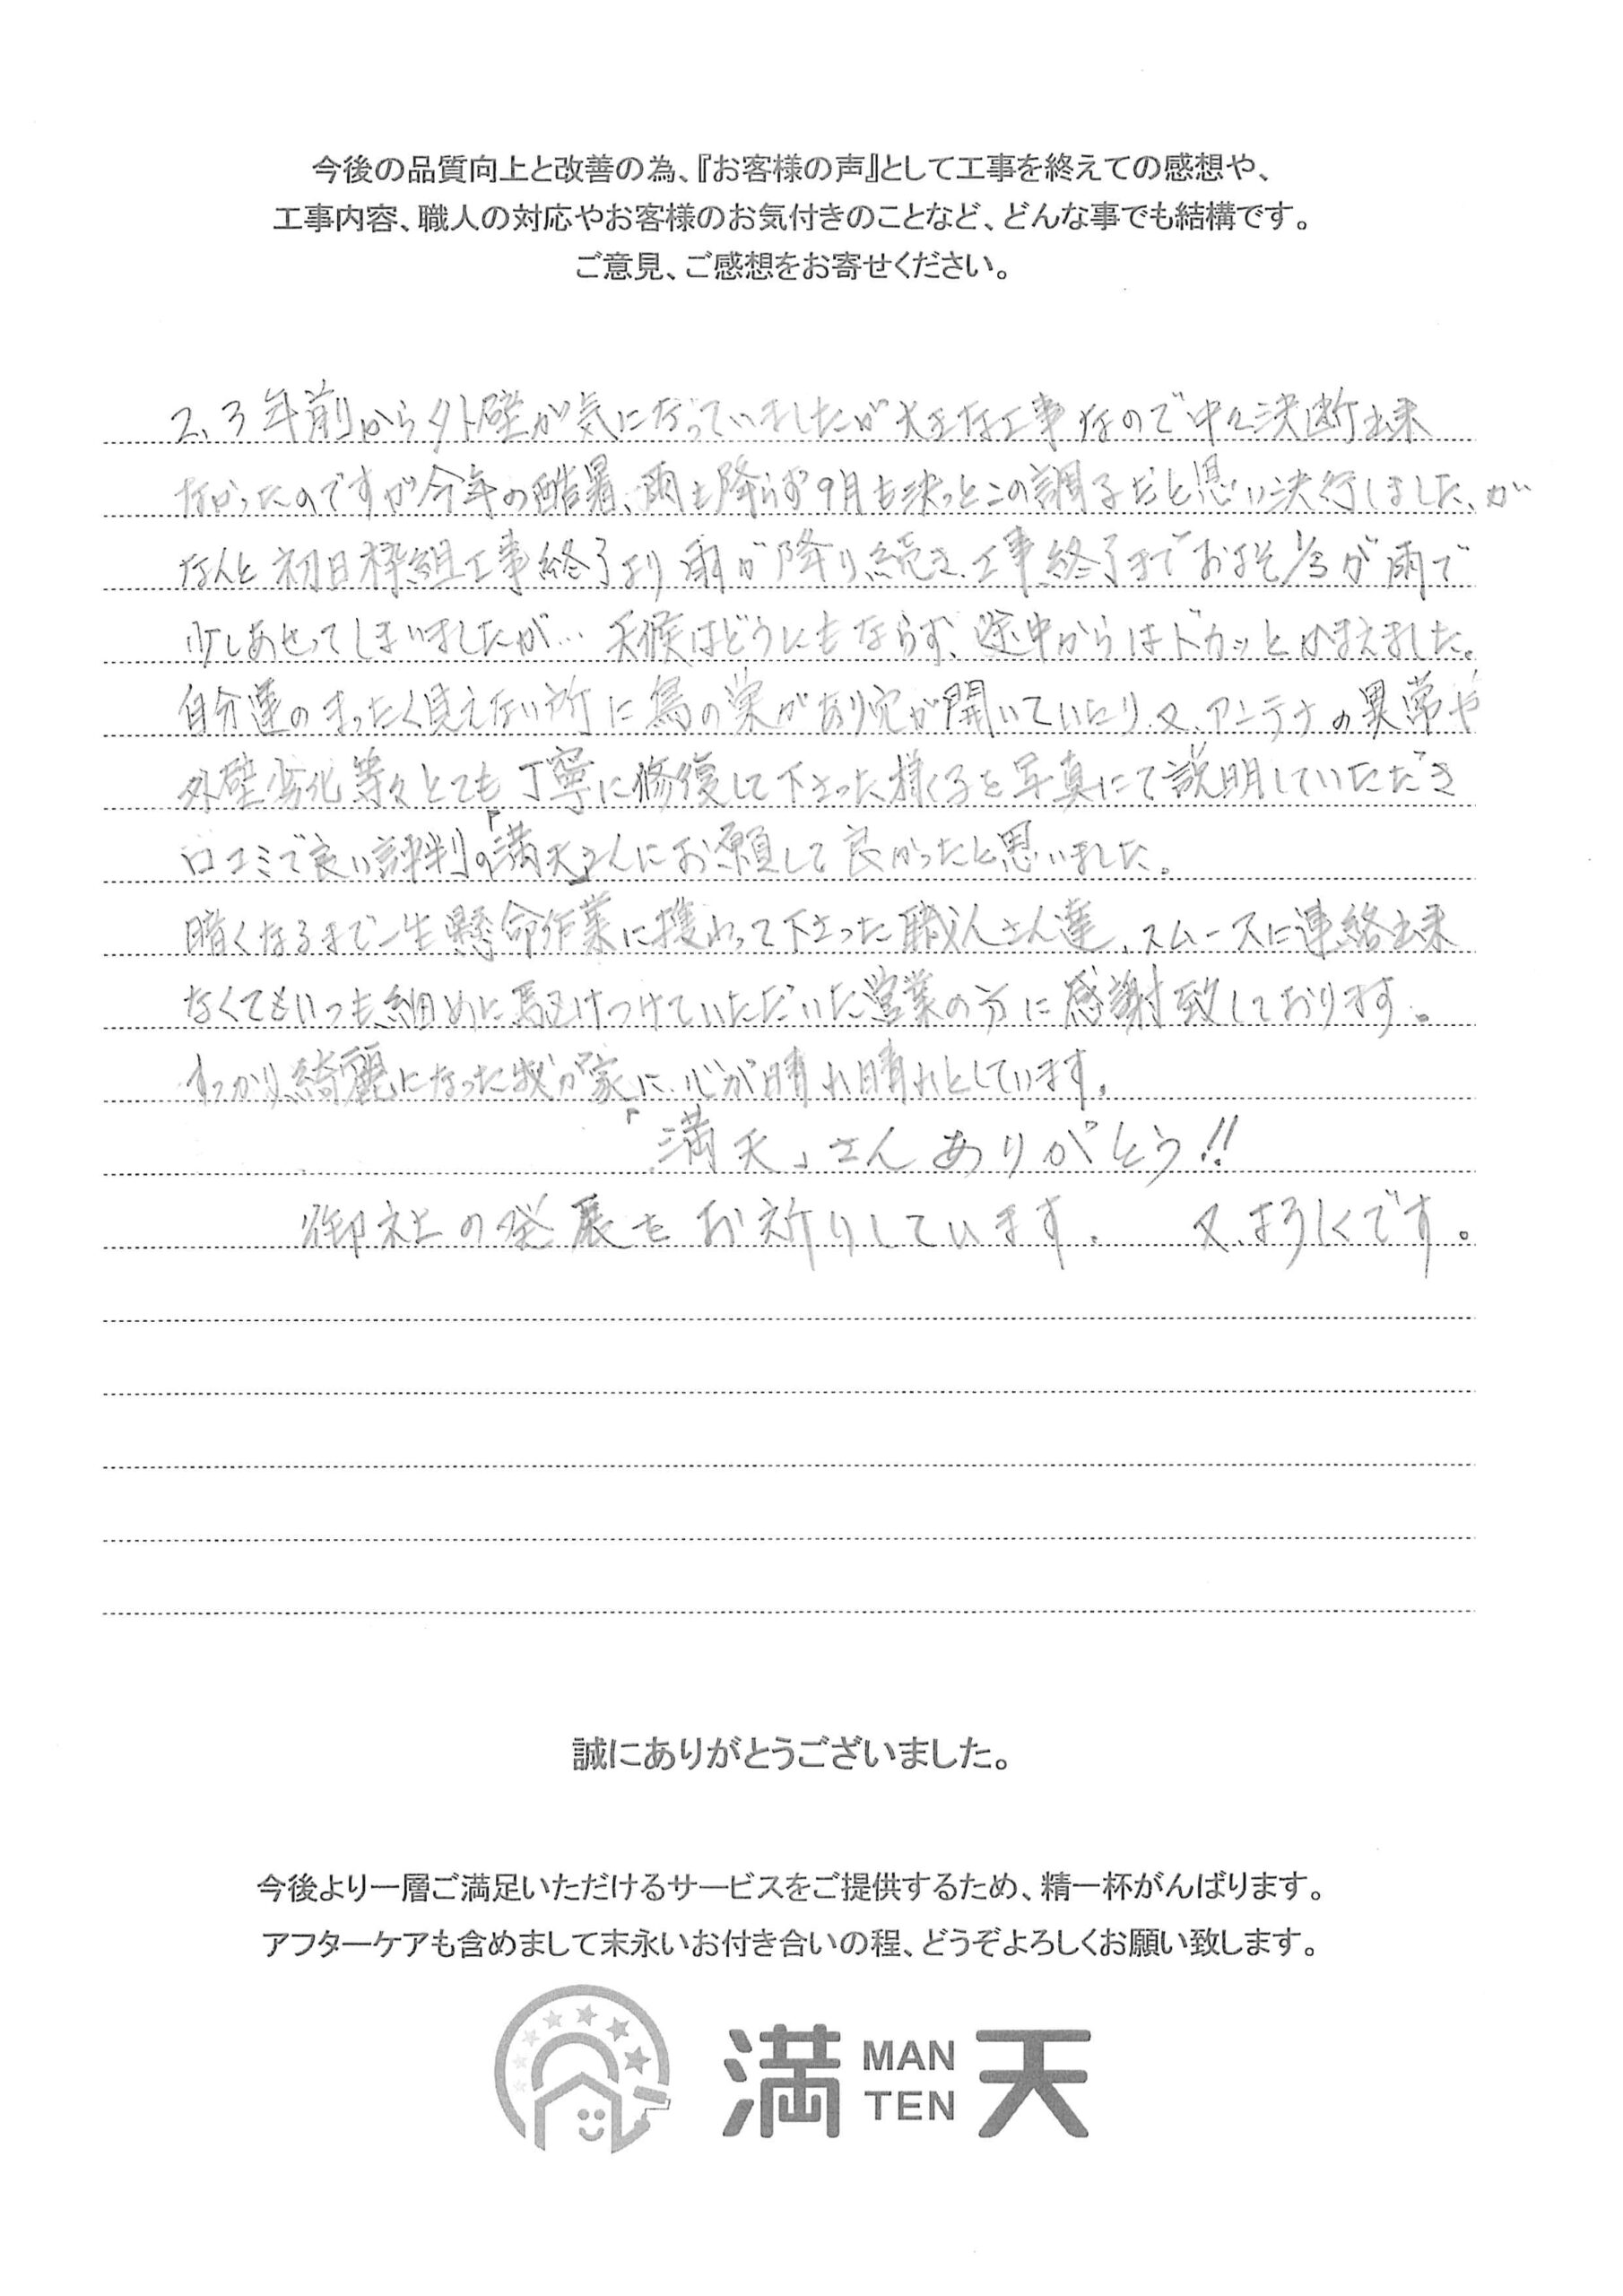 今後の品質向上と改善の為、『お客様の声』として工事を終えての感想や、
工事内容、職人の対応やお客様のお気付きのことなど、どんな事でも結構です。
ご意見、ご感想をお寄せください。
2、3年前から外壁が気になっていましたが大きな工事なので中々決断出来
なかったのですが今年の酷暑、雨も降らず9月も決っとこの調子だと思い決行しました、が
なんと初日枠組工事終了より雨が降り続き、工事終了までおよそ1/3が雨で
少しあせってしまいましたが… 天候はどうにもならず、途中からはドカッとかまえました。
自分達のまったく見えない所に鳥の巣があり穴が開いていたり、又、アンテナの異常や
外壁劣化等々とても丁寧に修復して下さった様子を写真にて説明していただき
口コミで良い評判の「満天」さんにお願して良かったと思いました。
暗くなるまで一生懸命作業に携わって下さった職人さん達、スムースに連絡出来
なくてもいつも細めに駆けつけていただいた営業の方に感謝致しております。
すっかり綺麗になった我が家に、心が晴れ晴れとしています。
「満天」さんありがとう!!
御社の発展をお祈りしています。 又、よろしくです。
誠にありがとうございました。
今後より一層ご満足いただけるサービスをご提供するため、精一杯がんばります。
アフターケアも含めまして末永いお付き合いの程、どうぞよろしくお願い致します。
満天 MAN TEN